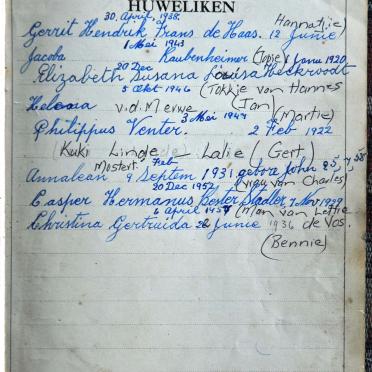 HUWELIKEN
30. April. 1938. Hannatjie
Gerrit Hendrik Frans de Haas. 12 Junie
1 Mei 1943
Jacoba Raubenheimer (Topie) 1 Junu 1920
20 Dec
Elizabeth Susana Louisa Heckroodt
5 Okt 1946 (Tokkie van Hannes
Helena v.d. Merwe (Jan)
3 Mei 1947 (Martie)
Philippus Venter. 2 Feb 1922
Kuki Linde - Lalie (Gert)
Mostert. Feb
Annalean 9 Septem 1931 gebore John
20 Dec 1952 (vrou van Charles)
Casper Hermanus Bester Stadler, 7 Nov 1929
6 April 1957 (Man van Lettie
Christina Gertruida 26 Junie 1936 de Vos.
(Bennie)